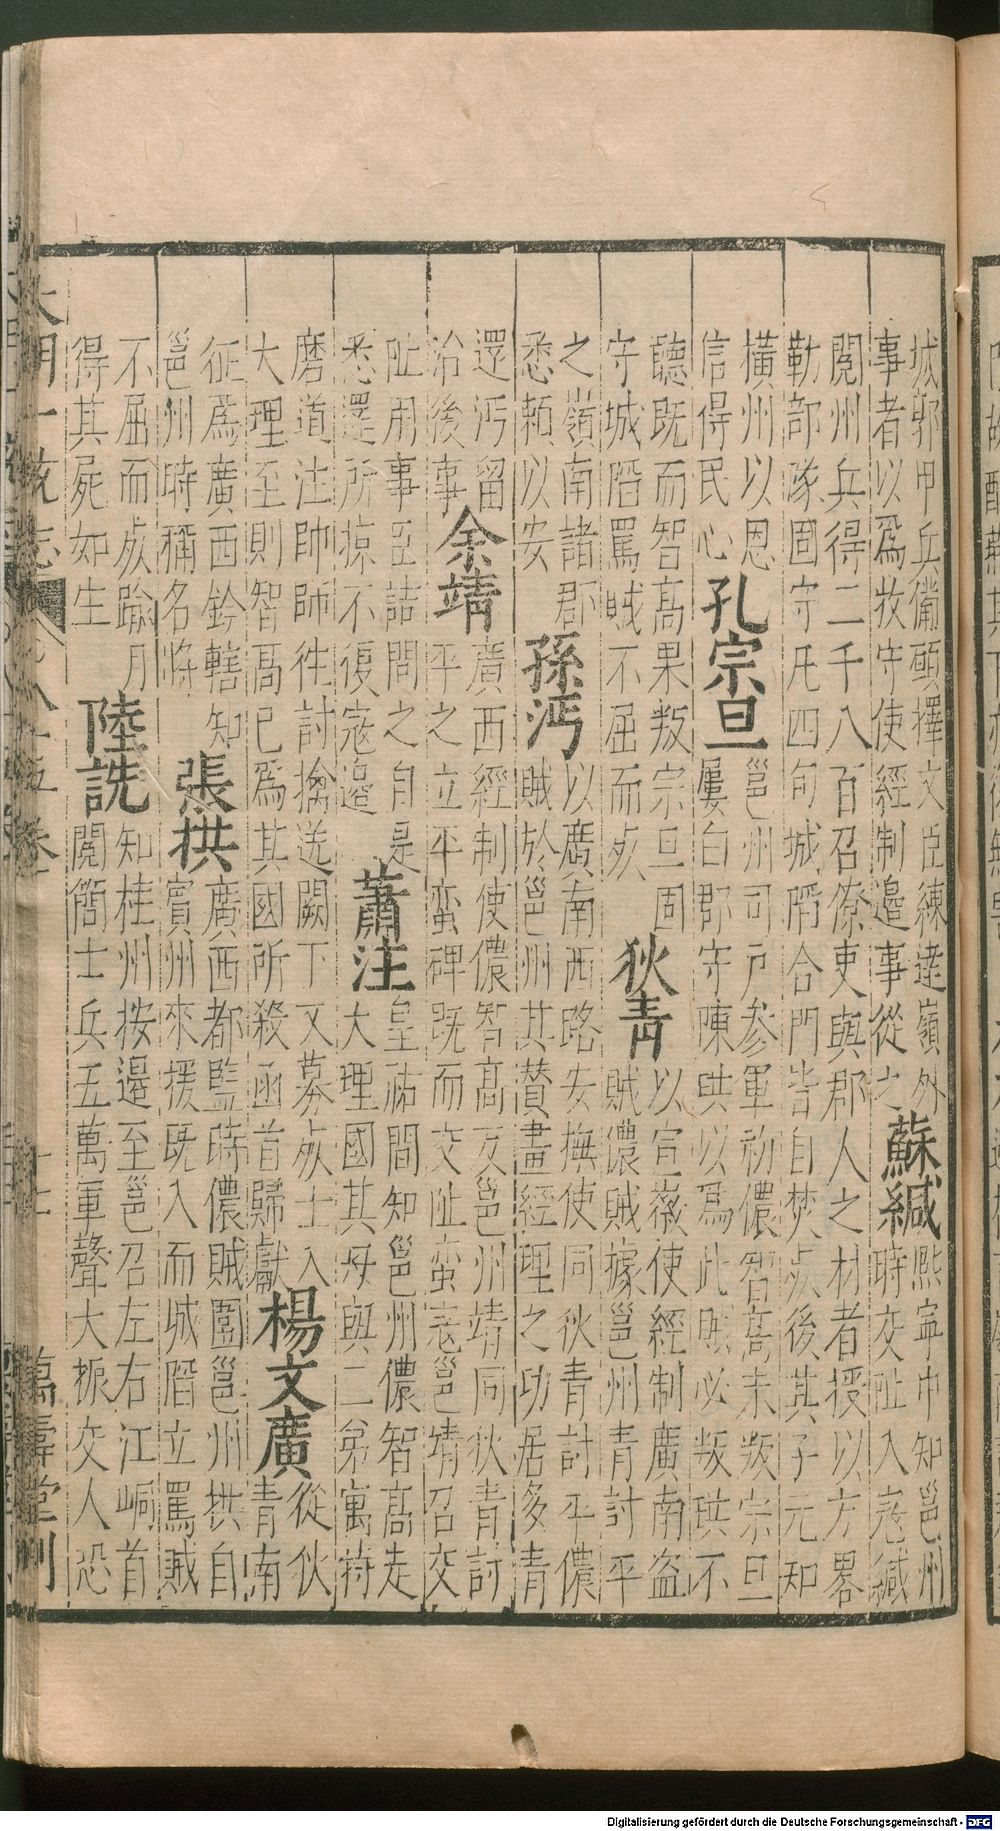 城郭甲兵備頤擇文臣練達嶺外
事者以爲牧守使經制邊事從之
蘇緘
熙寧中知邕州
時交阯入寇緘
閱州兵得二千八百召僚吏與郡人之材者授以方畧
勒部隊固守凡四旬城陷合門皆自焚歿後其子元知
橫州以恩
信得民心
孔宗旦
邕州司戶參軍初儂智高未叛宗旦
屢白郡守陳珙以爲此賊必叛珙不
聽既而智高果叛宗旦固
守城陷罵賊不屈而歿
狄青
以宣徽使經制廣南盜
賊儂賊據邕州青討平
之嶺南諸郡
悉頼以安
孫沔
以廣南西路安撫使同狄青討平儂
賊於邕州其賛畫經理之功居多青
還沔留
治後事
余靖
廣西經制使儂智高反邕州靖同狄青討
平之立平蛮碑既而交阯蛮寇邕靖召交
阯用事臣詰問之自是
悉還所掠不復寇邊
蕭注
皇祐間知邕州儂智高走
大理國其母與二弟寓特
磨道注帥師徃討擒送闕下又募歿士入
大理至則智高已爲其國所殺函首歸獻
楊文廣
從狄
青南
征爲廣西鈐轄知
邕州時稱名將
張拱
廣西都監時儂賊圍邕州拱自
賓州來援既入而城陷立罵賊
不屈而歿踰月
得其屍如生
陸詵
知桂州按邊至邕召左右江峒首
閱簡士兵五萬軍聲大振交人恐
大明一統志
卷八十五
萬壽堂刊
Digitalisierung gefördert durch die Deutsche Forschungsgemeinschaft - DFG